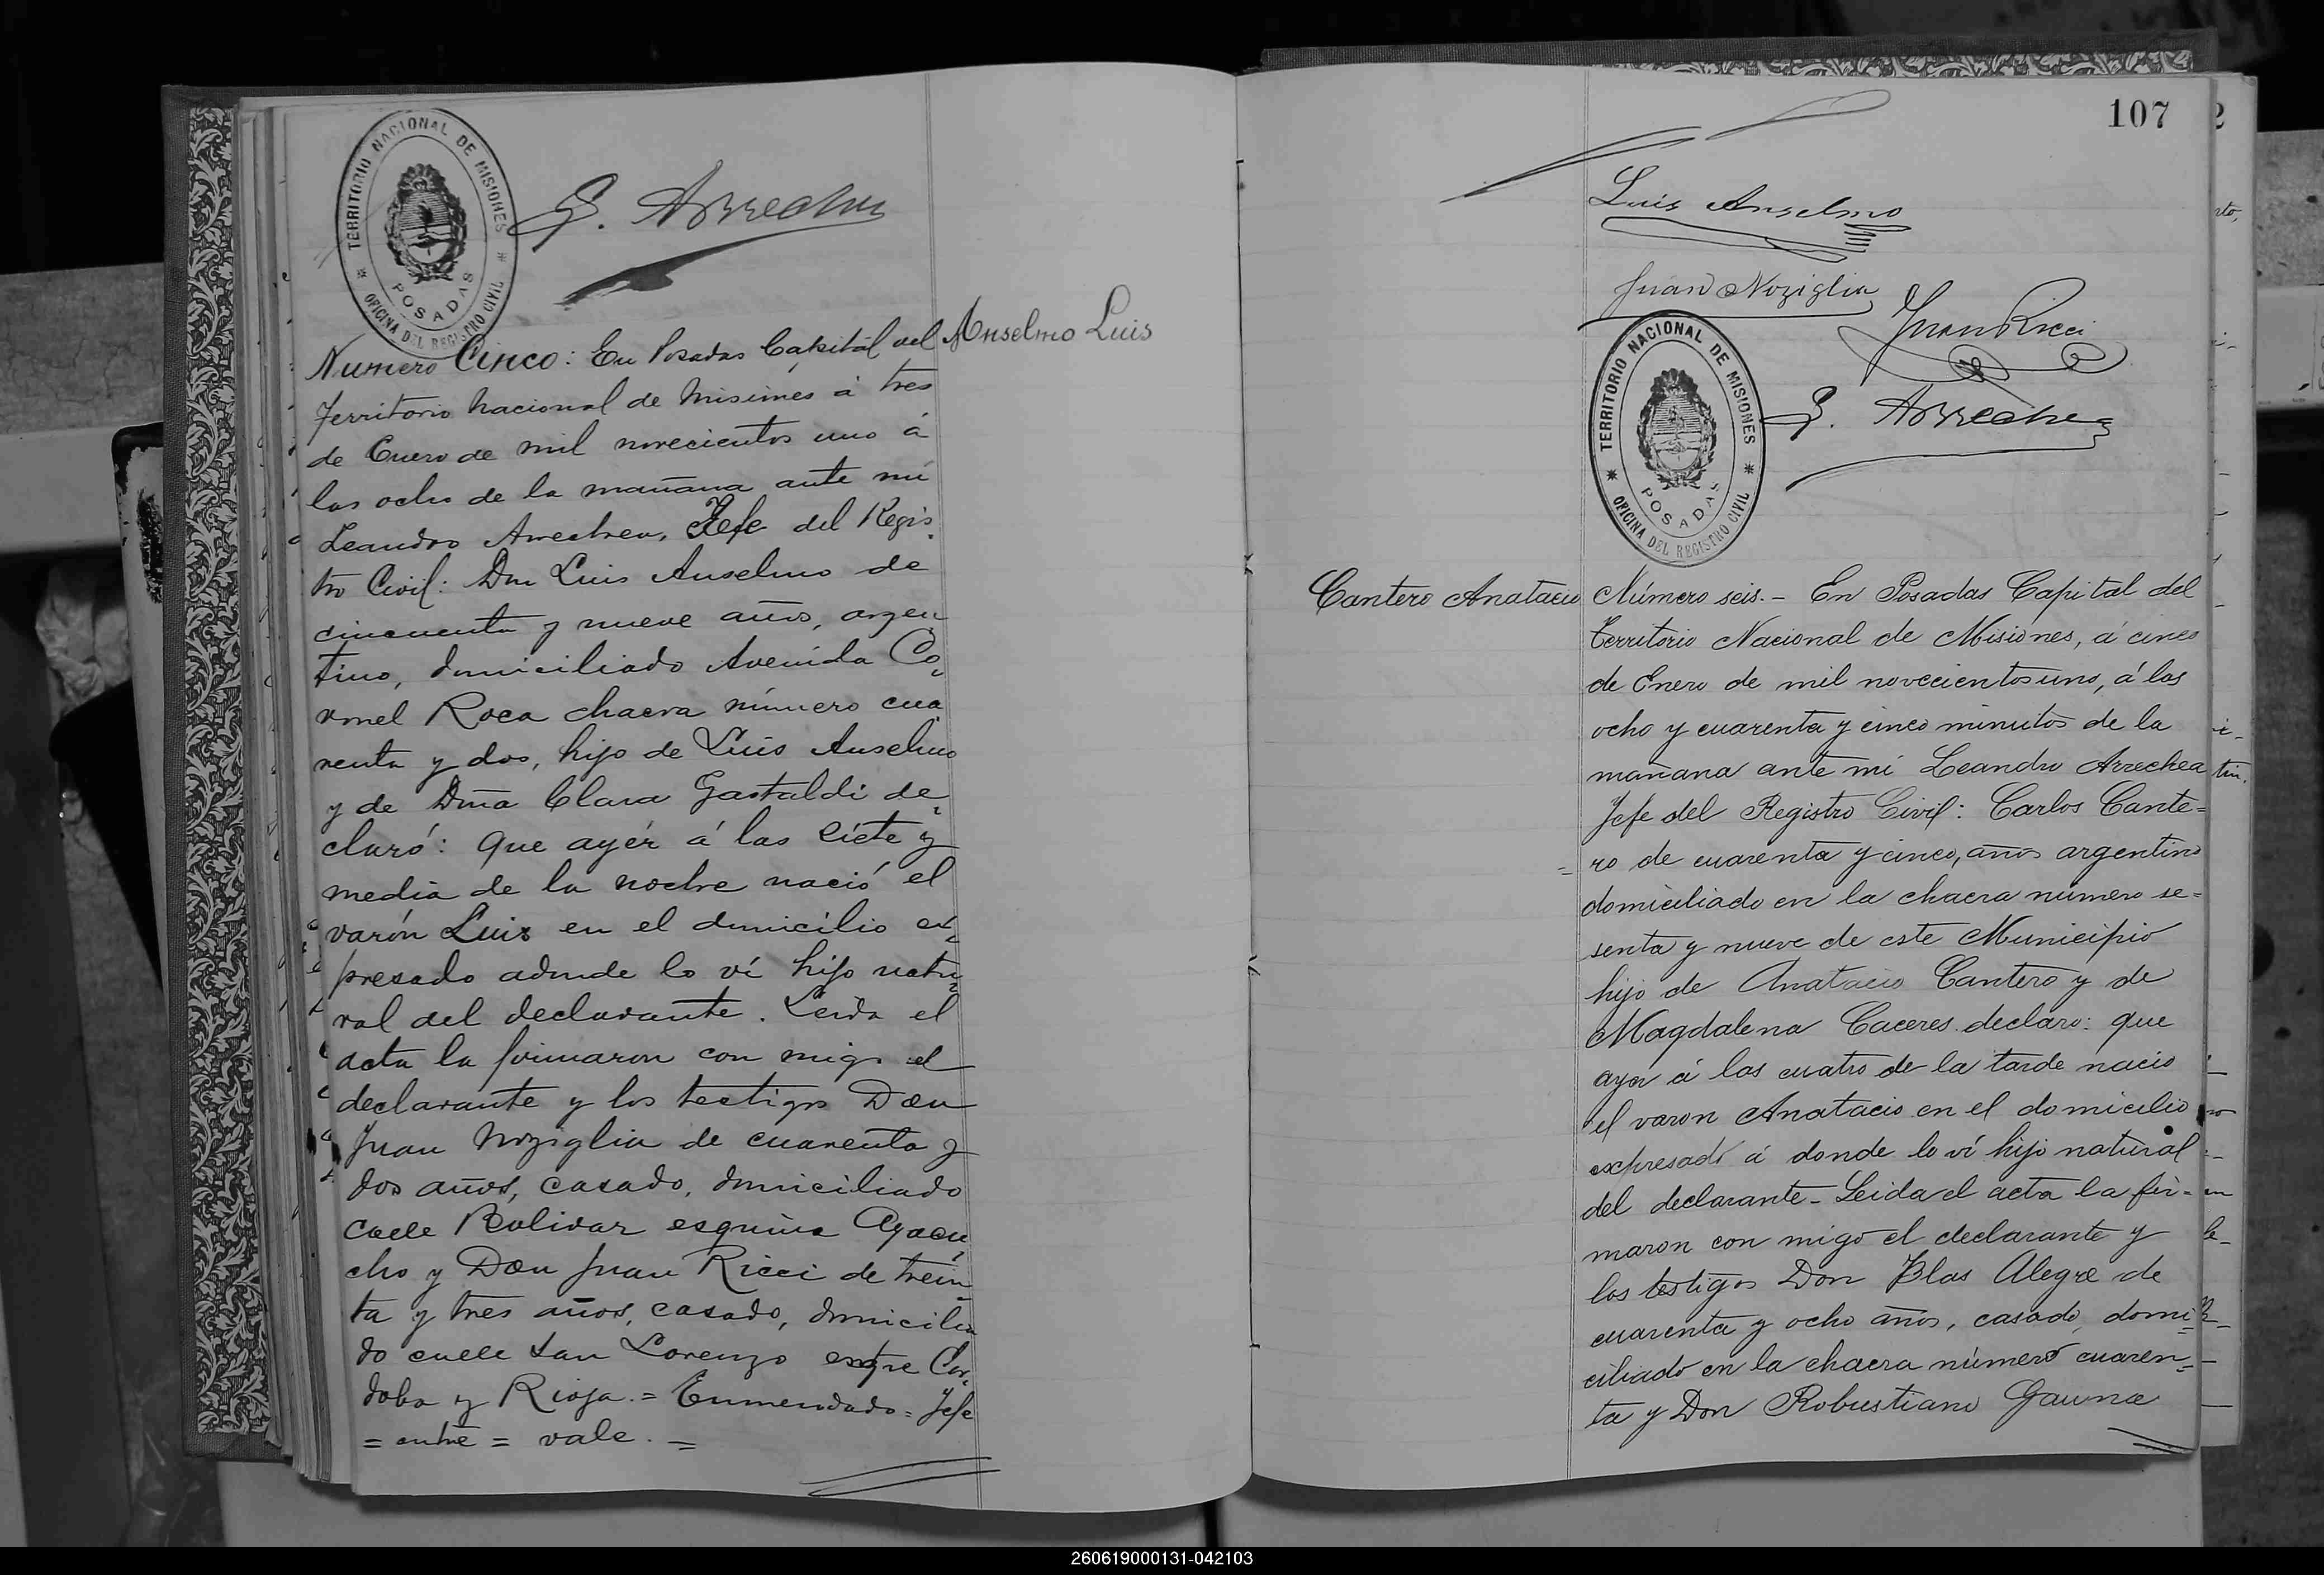 TERRITORIO NACIONAL DE MISIONES
POSADAS
OFICINA DEL REGISTRO CIVIL
Anselmo Luis
Numero Cinco: En Posadas Capital del
Territorio Nacional de Misiones á tres
de Enero de mil novecientos uno á
las ocho de la mañana ante mi
Leandro Arrechea, Jefe del Regis
tro Civil: Don Luis Anselmo de
cincuenta y nueve años, argen
tino, domiciliado Avenida Co-
ronel Roca chacra número cua
renta y dos, hijo de Luis Anselmo
y de Dña Clara Gastaldi de
claró: Que ayér á las siete y
media de la noche nació el
varón Luis en el domicilio ex
presado adonde lo ví hijo natu
ral del declarante. Leida el
acta la firmaron con migo el
declarante y los testigos Don
Juan Noziglia de cuarenta y
dos años, casado, domiciliado
calle Bolivar esquina Ayacu
cho y Don Juan Ricci de trein
ta y tres años, casado, domicilia
do calle San Lorenzo entre Cor
doba y Rioja.= Enmendado= Jefe
= entre = vale. =
107
Luis Anselmo
Juan Noziglia
Juan Ricci
TERRITORIO NACIONAL DE MISIONES
POSADAS
OFICINA DEL REGISTRO CIVIL
Cantero Anatacio
Número seis.- En Posadas Capital del
Territorio Nacional de Misiones, á cinco
de Enero de mil novecientos uno, á las
ocho y cuarenta y cinco minutos de la
mañana ante mi Leandro Arrechea
Jefe del Registro Civil: Carlos Cante=
ro de cuarenta y cinco, años argentino
domiciliado en la chacra número se=
senta y nueve de este Municipio
hijo de Anatacio Cantero y de
Magdalena Caceres declaro: que
ayer á las cuatro de la tarde nacio
el varon Anatacio en el domicilio
expresado á donde lo ví hijo natural
del declarante- Leida el acta la fir-
maron con migo el declarante y
los testigos Don Blas Alegre de
cuarenta y ocho años, casado, domi=
ciliado en la chacra número cuaren=
ta y Don Robustiano Gauna
260619000131-042103